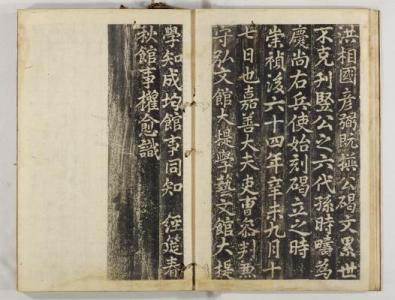 洪相國彥弼旣撰公碣文累世
不克刋竪公之六代孫時疇爲
慶尚右兵使始刻碣立之時
崇禎後六十四年辛未九月十
七日也嘉善大夫吏曹叅判兼
守弘文館大提學藝文館大提
學知成均館事同知 經筵春
秋館事權愈識